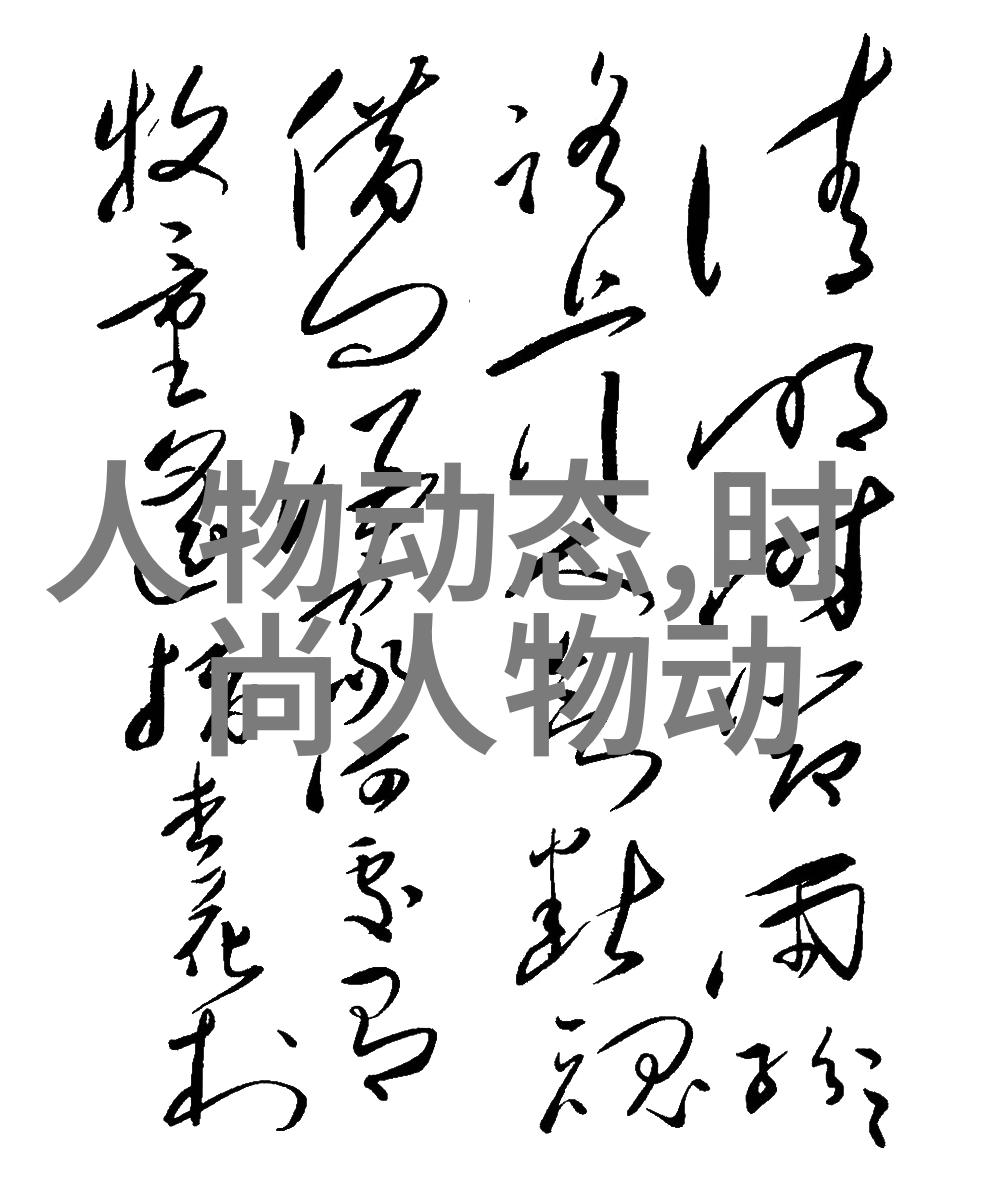 清明时节雨纷纷
路上行人欲断魂
借问酒家何处有
牧童遥指杏花村
人物动态,时
尚人物动